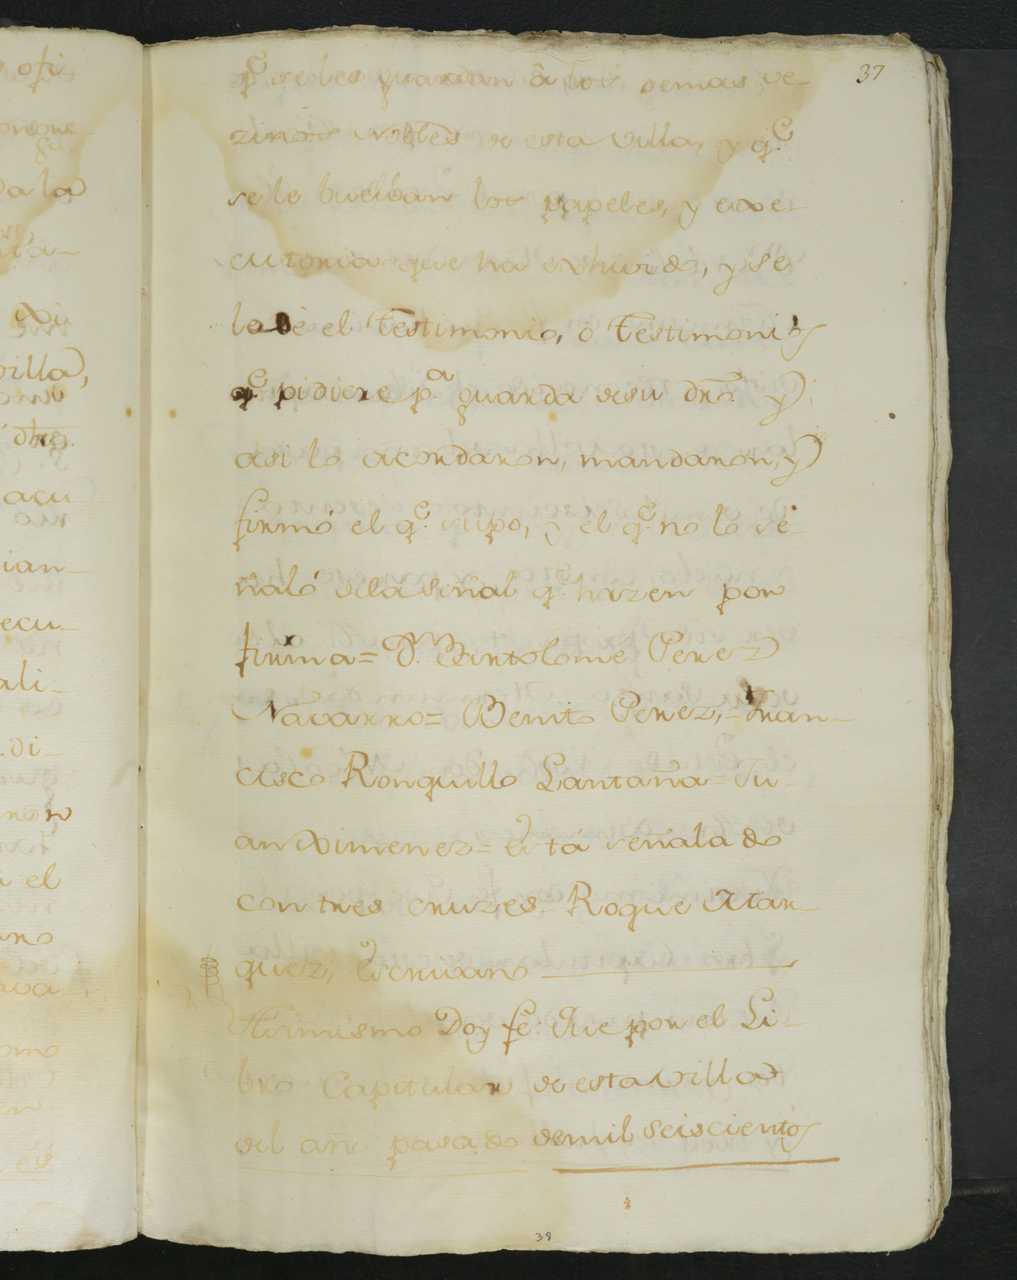 37
q.e se les guardan â los demas ve-
zinos nobles de esta villa, y q.e
se le buelban los papeles, y exe-
cutoria que ha exhivido, y se
le dè el testimonio, ò testimonios
q.e pidiere p.a guarda de su dro. Y
asi lo acordaron, mandaron, y
firmó el q.e supo, y el q.e no lo se-
ñaló de la señal q.e hazen por
firma = D. Bartolome Perez
Navarro = Benito Perez, = Fran-
cisco Ronquillo Lantana = Ju-
an Ximenez = Està señalado
con tres cruzes = Roque Mar-
quez, Escrivano
Asimismo Doy fe: Que por el Li-
bro Capitular de esta villa
del año pasado de mil seiscientos
39